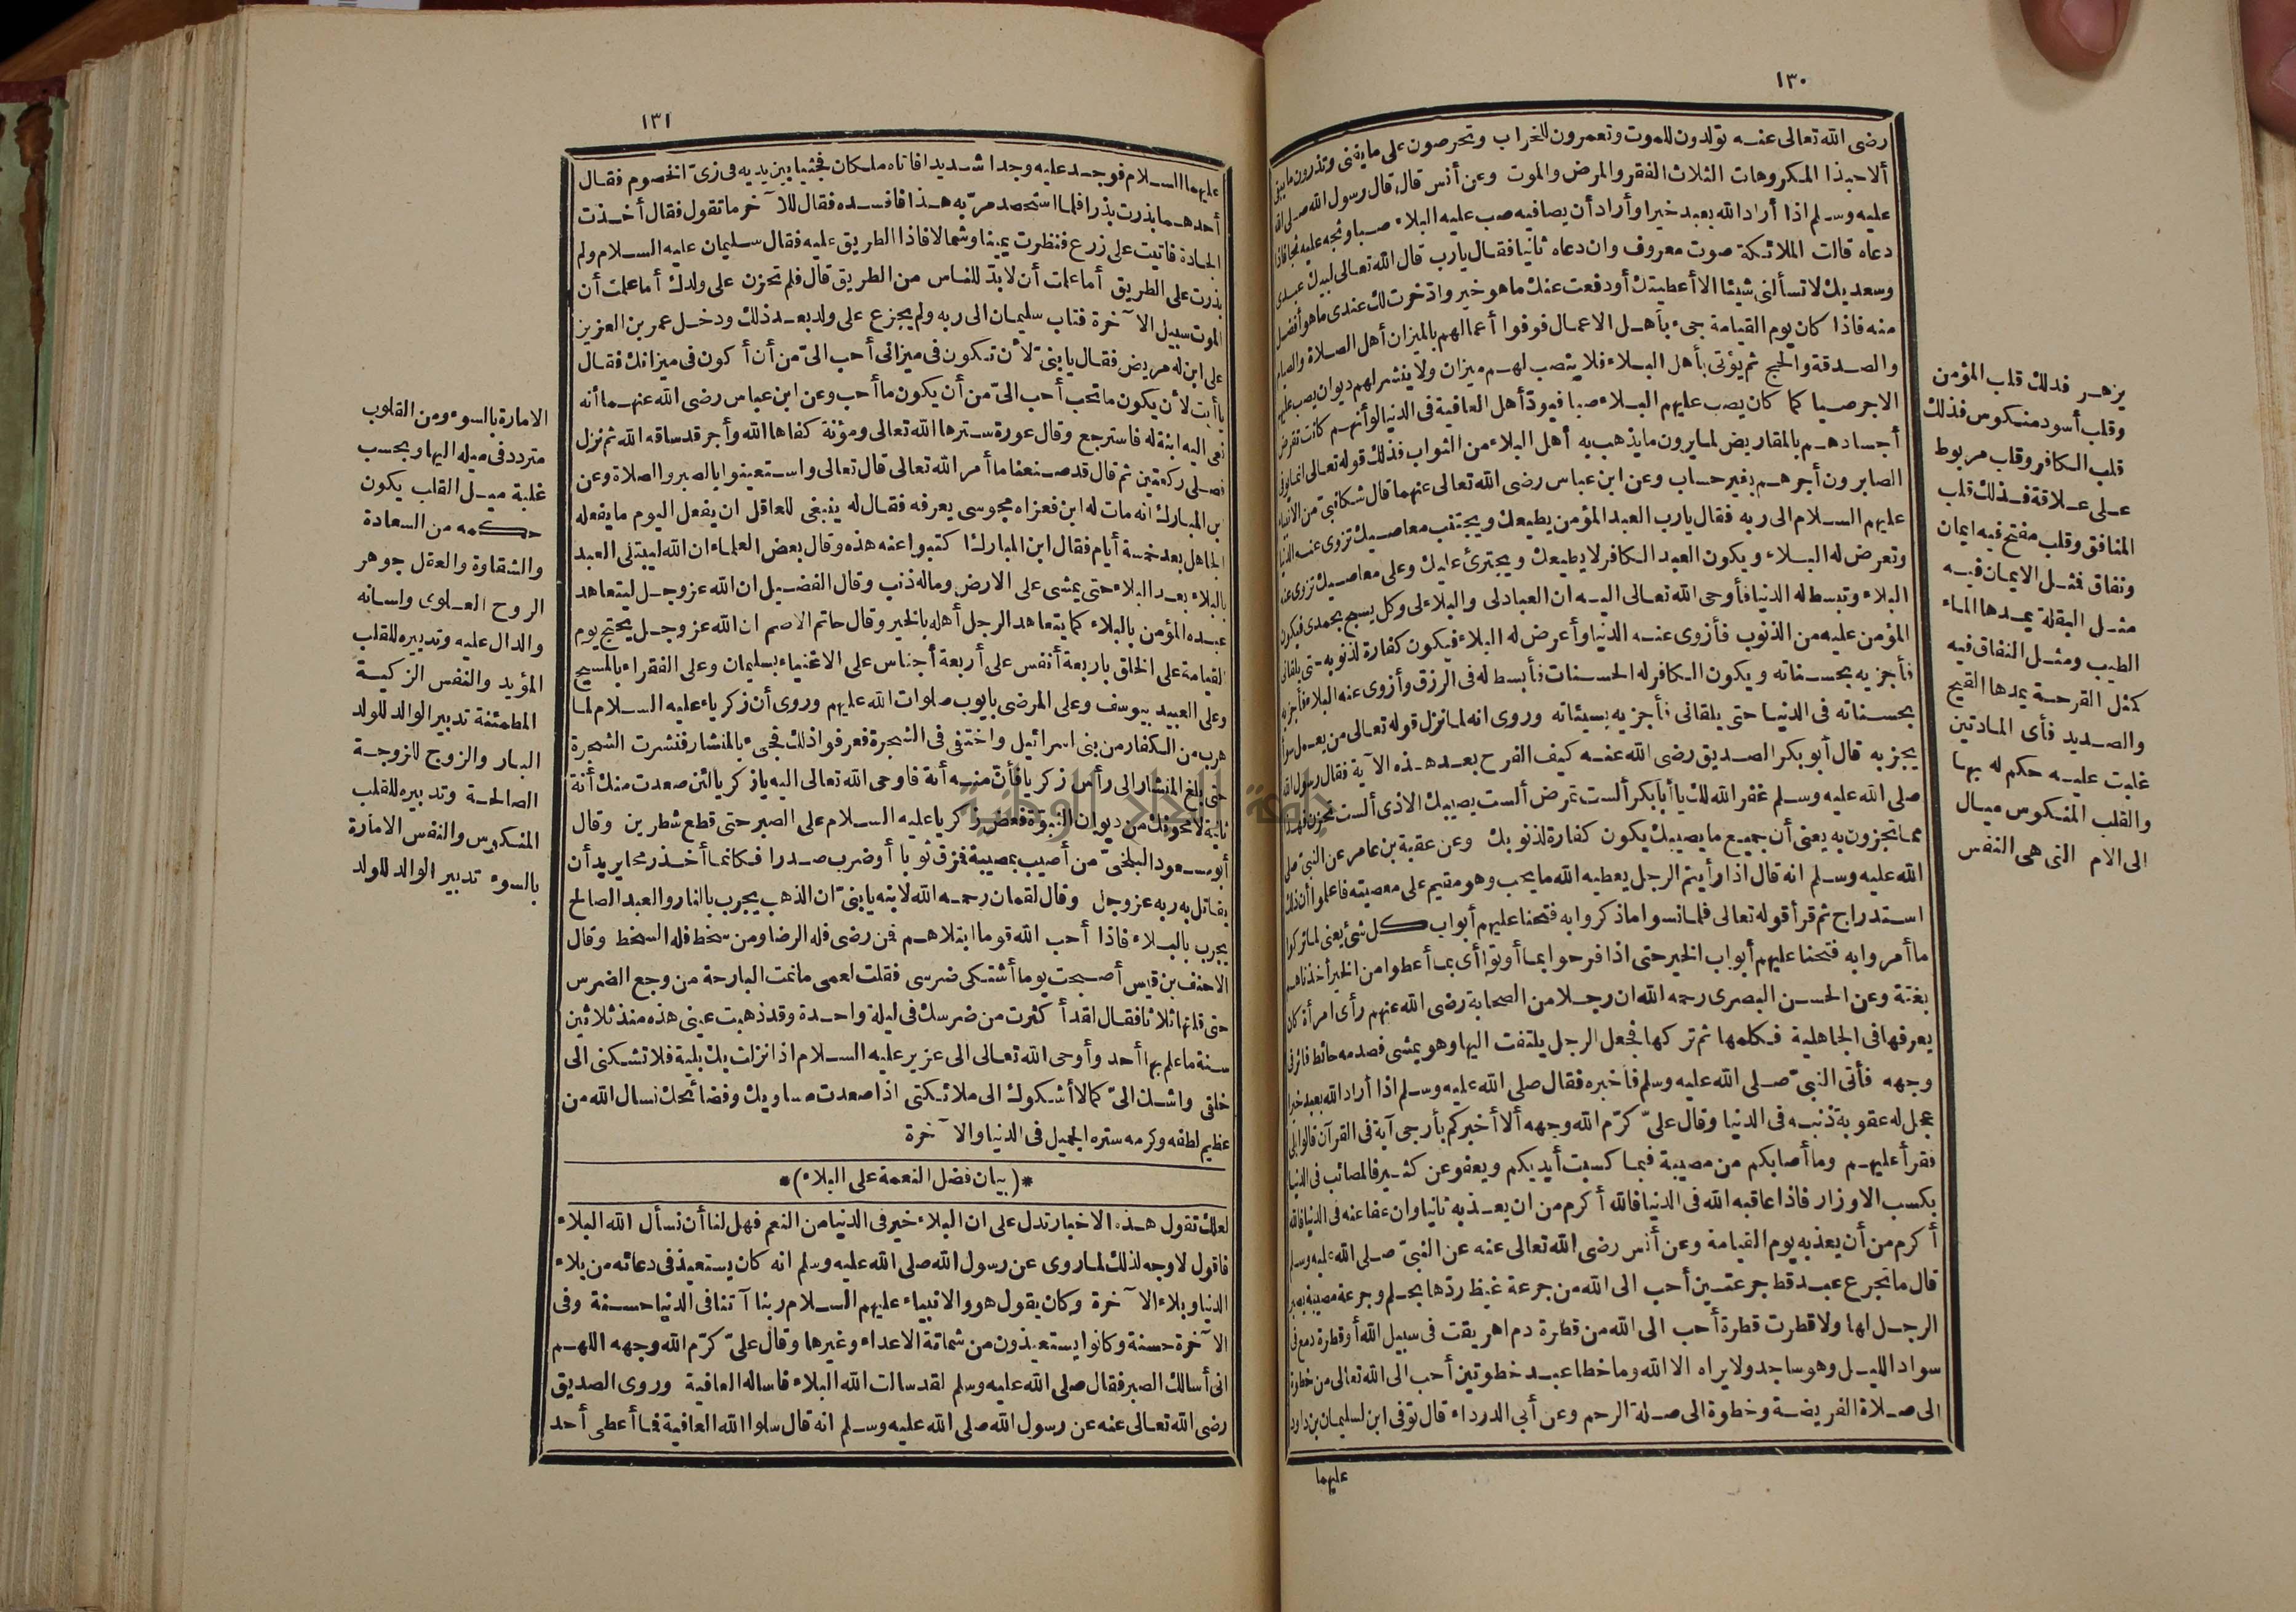 ١٣٠
رضى الله تعالى عنه تولدون للموت وتعمرون للخراب وتحرصون على ما يفنى وتذرون ما يبقى
ألا حبذا المكروهات الثلاث الفقر والمرض والموت وعن أنس قال قال رسول الله صلى الله
عليه وسلم اذا أراد الله بعبد خيرا وأراد أن يصافيه صب عليه البلاء صبا وثجه عليه ثجا فاذا
دعاه قالت الملائكة صوت معروف وان دعاه ثانيا فقال يارب قال الله تعالى لبيك عبدى
وسعديك لا تسألنى شيئا الا أعطيتك أو دفعت عنك ما هو خير وادّخرت لك عندى ما هو أفضل
منه فاذا كان يوم القيامة جىء بأهل الاعمال فوفوا أعمالهم بالميزان أهل الصلاة والصيام
والصدقة والحج ثم يؤتى بأهل البلاء فلا ينصب لهم ميزان ولا ينشر لهم ديوان يصب عليهم
الاجر صبا كما كان يصب عليهم البلاء صبا فيودّ أهل العافية فى الدنيا لو أنهم كانت تقرض
أجسادهم بالمقاريض لما يرون ما يذهب به أهل البلاء من الثواب فذلك قوله تعالى انما يوفى
الصابرون أجرهم بغير حساب وعن ابن عباس رضى الله تعالى عنهما قال شكا نبى من الانبياء
عليهم السلام الى ربه فقال يارب العبد المؤمن يطيعك ويجتنب معاصيك تزوى عنه الدنيا
وتعرض له البلاء ويكون العبد الكافر لا يطيعك ويجترئ عليك وعلى معاصيك تزوى عنه
البلاء وتبسط له الدنيا فأوحى الله تعالى اليه ان العباد لى والبلاء لى وكل يسبح بحمدى فيكون
المؤمن عليه من الذنوب فأزوى عنه الدنيا وأعرض له البلاء فيكون كفارة لذنوبه حتى يلقانى
فأجزيه بحسناته ويكون الكافر له الحسنات فأبسط له فى الرزق وأزوى عنه البلاء فأجزيه
بحسناته فى الدنيا حتى يلقانى فأجزيه بسيئاته وروى انه لما نزل قوله تعالى من يعمل سوأ
يجز به قال أبو بكر الصديق رضى الله عنه كيف الفرح بعد هذه الآية فقال رسول الله
صلى الله عليه وسلم غفر الله لك يا أبا بكر ألست تمرض ألست يصيبك الاذى ألست تحزن فهذا
مما تجزون به يعنى أن جميع ما يصيبك يكون كفارة لذنوبك وعن عقبة بن عامر عن النبىّ صلى
الله عليه وسلم انه قال اذا رأيتم الرجل يعطيه الله ما يحب وهو مقيم على معصيته فاعلموا أن ذلك
استدراج ثم قرأ قوله تعالى فلما نسوا ما ذكروا به فتحنا عليهم أبواب كل شئ يعنى لما تركوا
ما أمروا به فتحنا عليهم أبواب الخير حتى اذا فرحوا بما أوتوا أى بما أعطوا من الخير أخذناهم
بغتة وعن الحسن البصرى رحمه الله ان رجلا من الصحابة رضى الله عنهم رأى امرأة كان
يعرفها فى الجاهلية فكلمها ثم تركها فجعل الرجل يلتفت اليها وهو يمشى فصدمه حائط فأثر فى
وجهه فأتى النبىّ صلى الله عليه وسلم فأخبره فقال صلى الله عليه وسلم اذا أراد الله بعبد خيرا
عجل له عقوبة ذنبه فى الدنيا وقال علىّ كرّم الله وجهه ألا أخبركم بأرجى آية فى القرآن قالوا بلى
فقرأ عليهم وما أصابكم من مصيبة فبما كسبت أيديكم ويعفو عن كثير فالمصائب فى الدنيا
بكسب الاوزار فاذا عاقبه الله فى الدنيا فالله أكرم من ان يعذبه ثانيا وان عفا عنه فى الدنيا فالله
أكرم من أن يعذبه يوم القيامة وعن أنس رضى الله تعالى عنه عن النبىّ صلى الله عليه وسلم
قال ما تجرع عبد قط جرعتين أحب الى الله من جرعة غيظ ردّها بحلم وجرعة مصيبة يصبر
الرجل لها ولا قطرت قطرة أحب الى الله من قطرة دم اهريقت فى سبيل الله أو قطرة دمع فى
سواد الليل وهو ساجد ولا يراه الا الله وما خطا عبد خطوتين أحب الى الله تعالى من خطوة
الى صلاة الفريضة وخطوة الى صلة الرحم وعن أبى الدرداء قال توفى ابن لسليمان بن داود
عليهما
يزهر فذلك قلب المؤمن
وقلب أسود منكوس فذلك
قلب الكافر وقلب مربوط
على علاقة فذلك قلب
المنافق وقلب مفتح فيه ايمان
ونفاق فمثل الايمان فيه
مثل البقلة يمدها الماء
الطيب ومثل النفاق فيه
كمثل القرحة يمدها القيح
والصديد فأى المادتين
غلبت عليه حكم له بها
والقلب المنكوس ميال
الى الام التى هى النفس
١٣١
عليهما السلام فوجد عليه وجدا شديدا فاتاه ملكان فجثيا بين يديه فى زىّ الخصوم فقال
أحدهما بذرت بذرا فلما استحصد مرّ به هذا فافسده فقال للآخر ما تقول فقال أخذت
الجادة فاتيت على زرع فنظرت يمينا وشمالا فاذا الطريق عليه فقال سليمان عليه السلام ولم
بذرت على الطريق أما علمت أن لا بدّ للناس من الطريق قال فلم تحزن على ولدك أما علمت أن
الموت سبيل الآخرة فتاب سليمان الى ربه ولم يجزع على ولد بعد ذلك ودخل عمر بن العزيز
على ابن له مريض فقال يا بنىّ لأن تكون فى ميزانى أحب الىّ من أن أكون فى ميزانك فقال
يا أبت لأن يكون ما تحب أحب الىّ من أن يكون ما أحب وعن ابن عباس رضى الله عنهما أنه
نعى اليه ابنة له فاسترجع وقال عورة سترها الله تعالى ومؤنة كفاها الله وأجر قد ساقه الله ثم نزل
فصلى ركعتين ثم قال قد صنعنا ما أمر الله تعالى قال تعالى واستعينوا بالصبر والصلاة وعن
ابن المبارك انه مات له ابن فعزاه مجوسى يعرفه فقال له ينبغى للعاقل ان يفعل اليوم ما يفعله
الجاهل بعد خمسة أيام فقال ابن المبارك اكتبوا عنه هذه وقال بعض العلماء ان الله ليبتلى العبد
بالبلاء بعد البلاء حتى يمشى على الارض وماله ذنب وقال الفضيل ان الله عز وجل ليتعاهد
عبده المؤمن بالبلاء كما يتعاهد الرجل أهله بالخير وقال حاتم الاصم ان الله عز وجل يحتج يوم
القيامة على الخلق باربعة أنفس على أربعة أجناس على الاغنياء بسليمان وعلى الفقراء بالمسيح
وعلى العبيد بيوسف وعلى المرضى بايوب صلوات الله عليهم وروى أن زكرياء عليه السلام لما
هرب من الكفار من بنى اسرائيل واختفى فى الشجرة فعرفوا ذلك فجىء بالمنشار فنشرت الشجرة
حتى بلغ المنشار الى رأس زكريا فأنّ منه أنة فاوحى الله تعالى اليه يازكريا لئن صعدت منك أنة
ثانية لأمحونك من ديوان النبوّة فعض زكريا عليه السلام على الصبر حتى قطع شطرين وقال
أبو مسعود البلخىّ من أصيب بمصيبة فمزق ثوبا أو ضرب صدرا فكانما أخذ رمحا يريد أن
يقاتل به ربه عز وجل وقال لقمان رحمه الله لابنه يا بنىّ ان الذهب يجرب بالنار والعبد الصالح
يجرب بالبلاء فاذا أحب الله قوما ابتلاهم فمن رضى فله الرضا ومن سخط فله السخط وقال
الاحنف بن قيس أصبحت يوما أشتكى ضرسى فقلت لعمى ما نمت البارحة من وجع الضرس
حتى قلتها ثلاثا فقال لقد أكثرت من ضرسك فى ليلة واحدة وقد ذهبت عينى هذه منذ ثلاثين
سنة ما علم بها أحد وأوحى الله تعالى الى عزير عليه السلام اذا نزلت بك بلية فلا تشكنى الى
خلقى واشك الىّ كما لا أشكوك الى ملائكتى اذا صعدت مساويك وفضائحك نسال الله من
عظيم لطفه وكرمه ستره الجميل فى الدنيا والآخرة
*(بيان فضل النعمة على البلاء)*
لعلك تقول هذه الاخبار تدل على ان البلاء خير فى الدنيا من النعم فهل لنا أن نسأل الله البلاء
فاقول لا وجه لذلك لما روى عن رسول الله صلى الله عليه وسلم انه كان يستعيذ فى دعائه من بلاء
الدنيا وبلاء الآخرة وكان يقول هو والانبياء عليهم السلام ربنا آتنا فى الدنيا حسنة وفى
الآخرة حسنة وكانوا يستعيذون من شماتة الاعداء وغيرها وقال علىّ كرّم الله وجهه اللهم
انى أسالك الصبر فقال صلى الله عليه وسلم لقد سالت الله البلاء فاساله العافية وروى الصديق
رضى الله تعالى عنه عن رسول الله صلى الله عليه وسلم انه قال سلوا الله العافية فما أعطى أحد
الامارة بالسوء ومن القلوب
متردد فى ميله اليها وبحسب
غلبة ميل القلب يكون
حكمه من السعادة
والشقاوة والعقل جوهر
الروح العلوى ولسانه
والدال عليه وتدبيره للقلب
المؤيد والنفس الزكية
المطمئنة تدبير الوالد للولد
البار والزوج للزوجة
الصالحة وتدبيره للقلب
المنكوس والنفس الامارة
بالسوء تدبير الوالد للولد
جامعة النجاح الوطنية